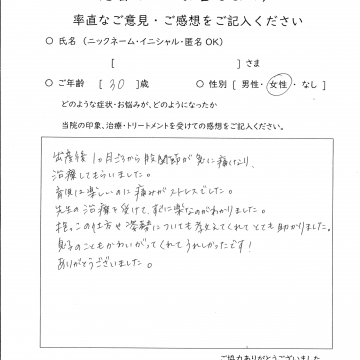 率直なご意見・ご感想をご記入ください
○ 氏名 (ニックネーム・イニシャル・匿名OK)
[ ] さま
○ ご年齢 [ 30 ] 歳 ○ 性別 [ 男性・女性・なし ]
どのような症状・お悩みが、どのようになったか
当院の印象、治療・トリートメントを受けての感想をご記入ください。
出産後1ヵ月ごろから股関節が急に痛くなり、
治療してもらいました。
育児は楽しいのに痛みがストレスでした。
先生の治療を受けて、すぐに楽なのがわかりました。
抱っこの仕方や姿勢についても教えてくれてとても助かりました。
息子のこともかわいがってくれてうれしかったです!
ありがとうございました。
ご協力ありがとうございました